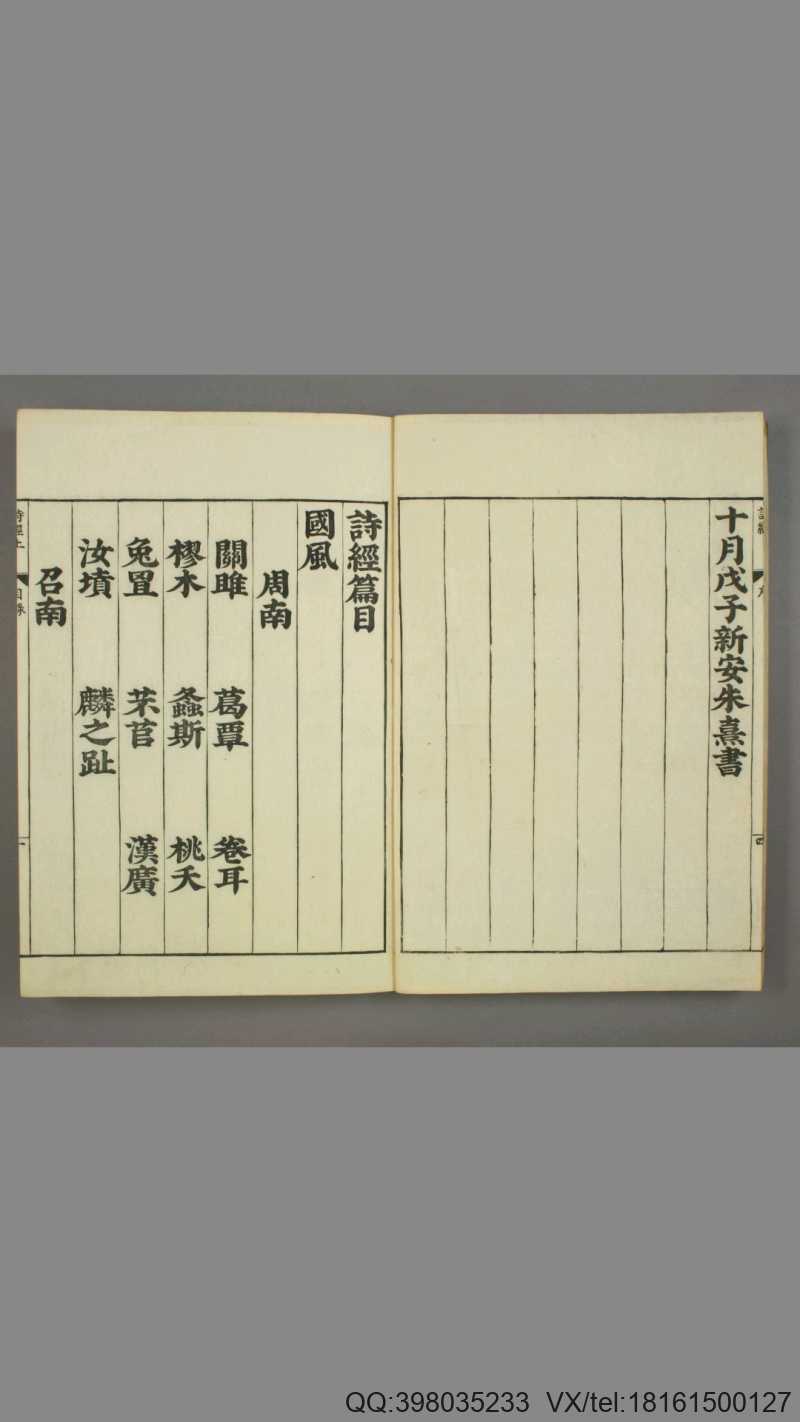 十月戊子新安朱熹書
四
詩經篇目
國風
周南
關雎 葛覃 卷耳
樛木 螽斯 桃夭
兔罝 芣苢 漢廣
汝墳 麟之趾
召南
詩經上 目錄 一
QQ:398035233 VX/tel:18161500127